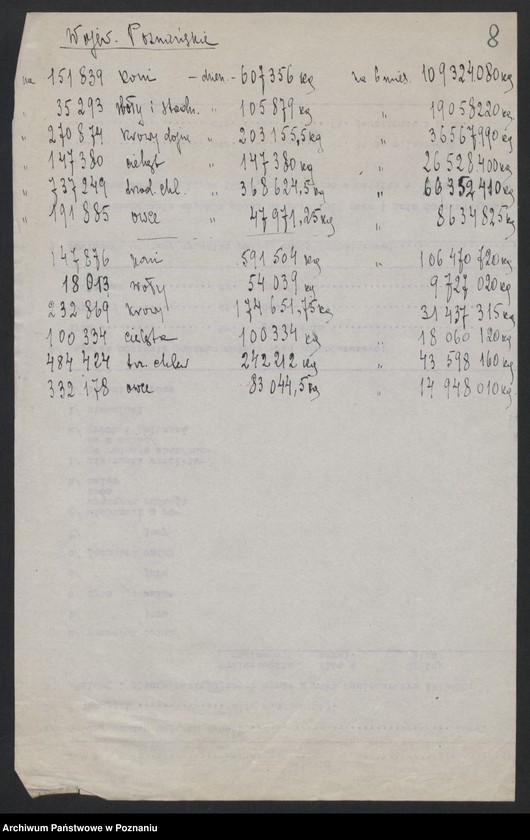 8
Wojew. Poznańskie
na 151 839 koni – dzien. – 607 356 kg na 6 mies. 109 324 080 kg
„ 35 293 woły i stadn. „ 105 879 kg „ 19 058 220 kg
„ 270 874 krowy dojne „ 203 155,5 kg „ 36 567 990 kg
„ 147 380 cieląt „ 147 380 kg „ 26 528 400 kg
„ 737 249 trzod. chl. „ 368 624,5 kg „ 66 352 410 kg
„ 191 885 owce „ 47 971,25 kg „ 8 634 825 kg
147 876 koni 591 504 kg „ 106 470 720 kg
18 013 woły 54 039 kg „ 9 727 020 kg
232 869 krowy 174 651,75 kg 31 437 315 kg
100 334 cielęta 100 334 kg „ 18 060 120 kg
484 424 trz. chlew 242 212 kg „ 43 598 160 kg
332 178 owce 83 044,5 kg „ 14 948 010 kg
Archiwum Państwowe w Poznaniu